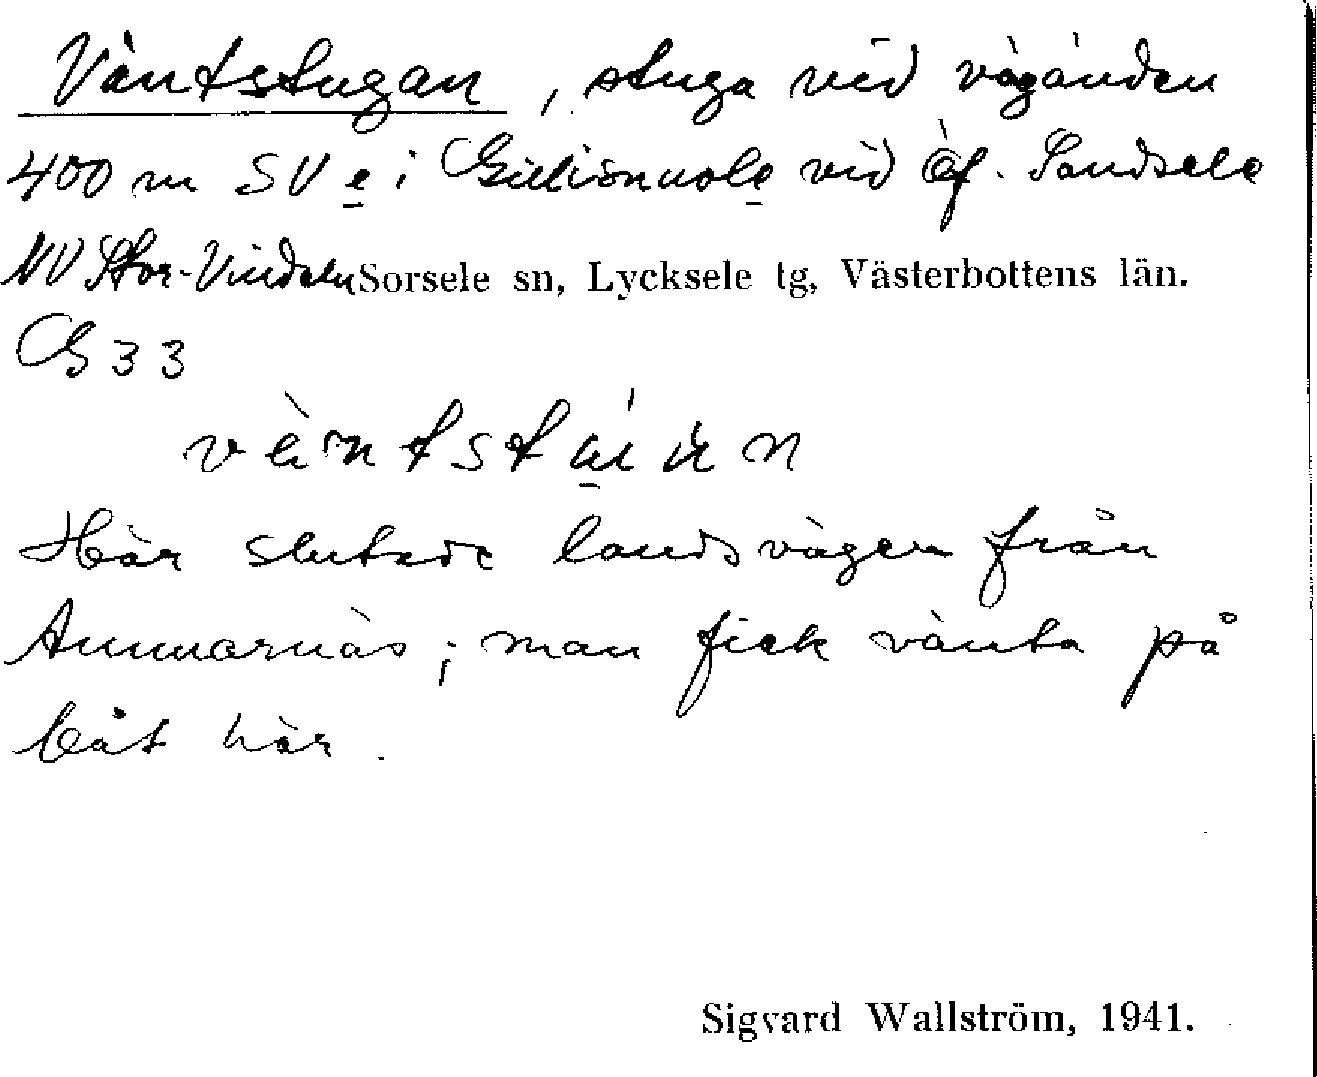 Väntstugan, stuga vid vägänden
400 m SV e i Giedisnuole vid äf. Sandsele
NV Stor-Vindeln Sorsele sn, Lycksele tg, Västerbottens län.
G 33
vä̀ntstú̱n
Här slutade landsvägen från
Ammarnäs; man fick vänta på
båt här.
Sigvard Wallström, 1941.